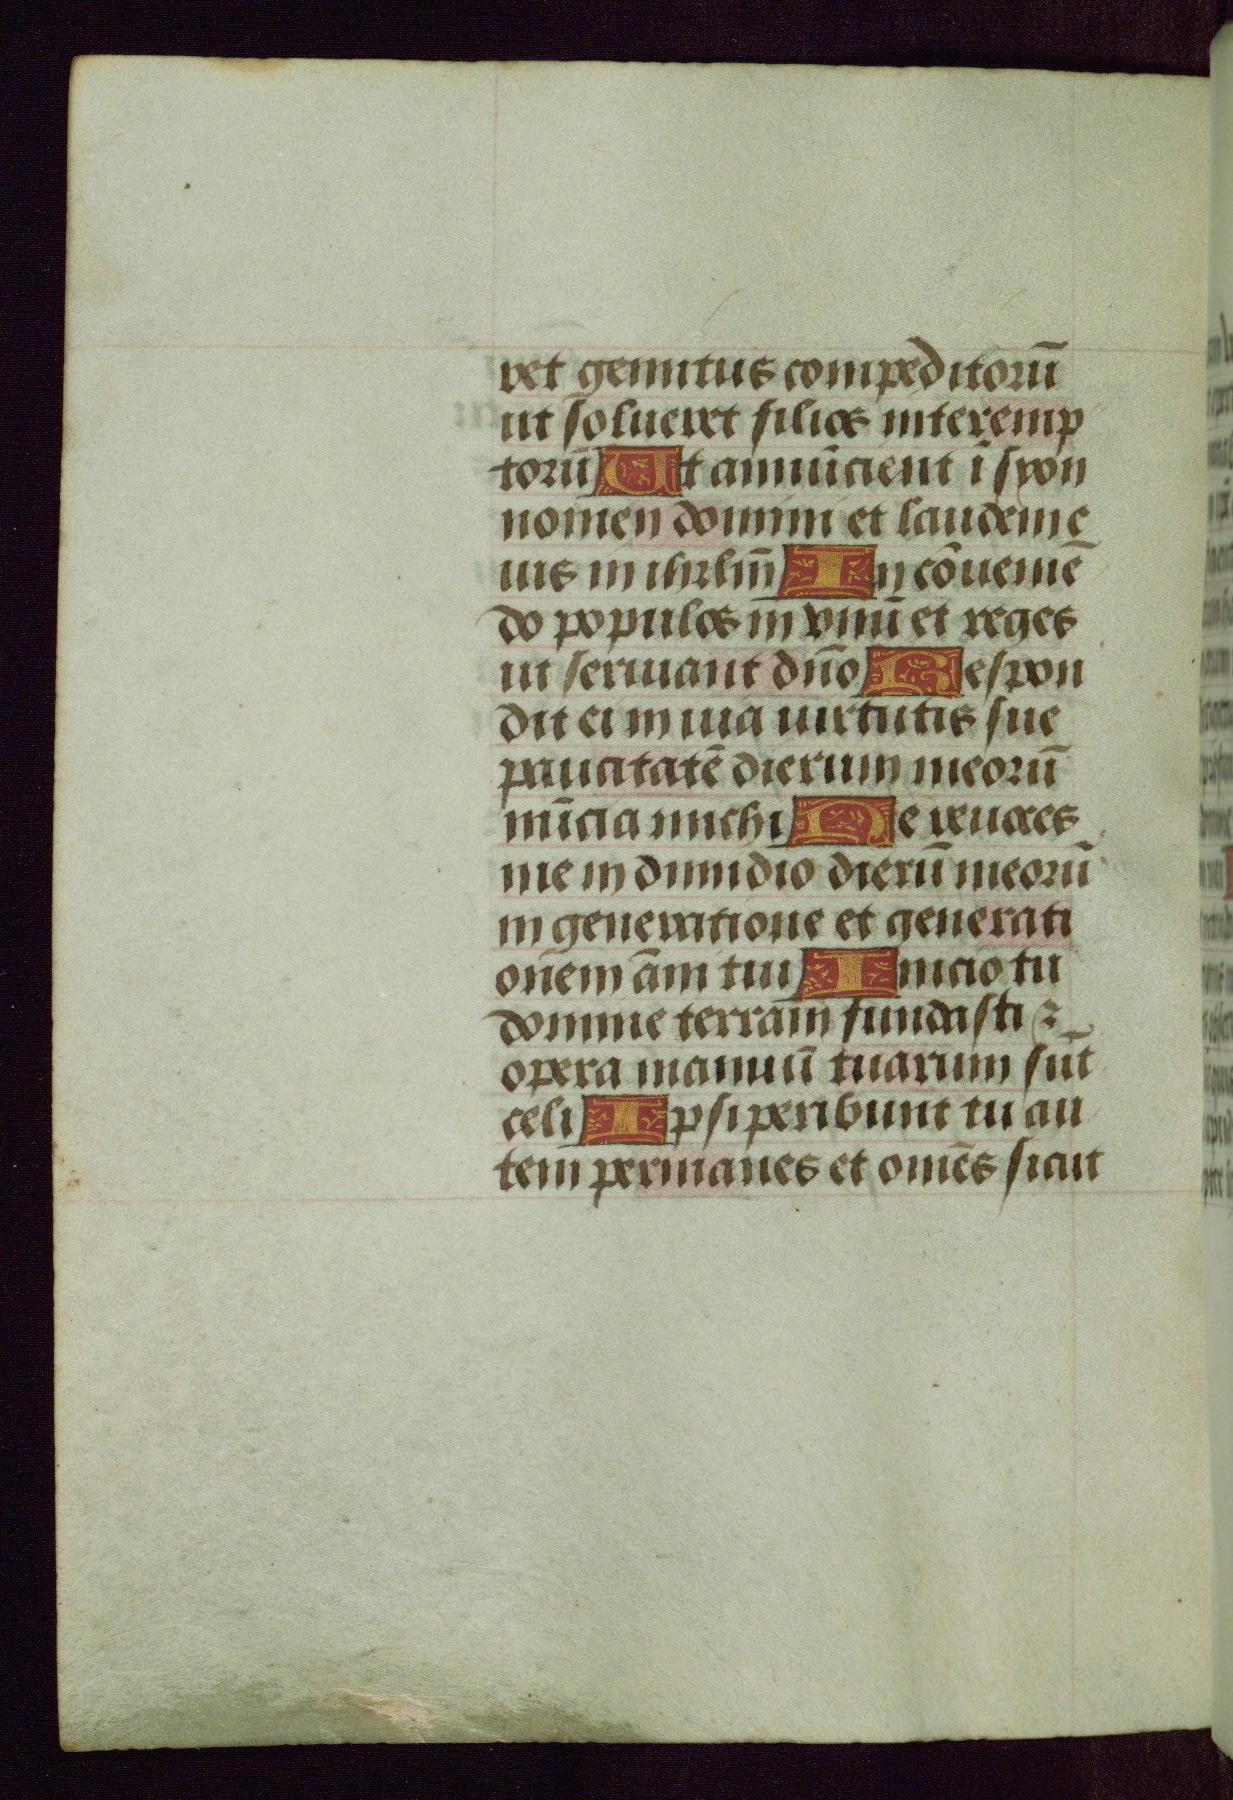 ret gemitus compeditorū
ut solueret filios interemp
torū Ut annūcient ī syon
nomen domini et laudem e
ius in ihrlm̄ In cōueniē
do populos in vnum̄ et reges
ut seruiant dn̄o Respon
dit ei in uia uirtutis sue
paucitatē dierum meorū
nūcia michi Ne reuoces
me in dimidio dierū meorū
in generatione et generati
onem ām tui Inicio tu
domine terram fundasti ⁊
opera manuū tuarum sūt
celi Ipsi peribunt tu au
tem permanes et omēs sicut